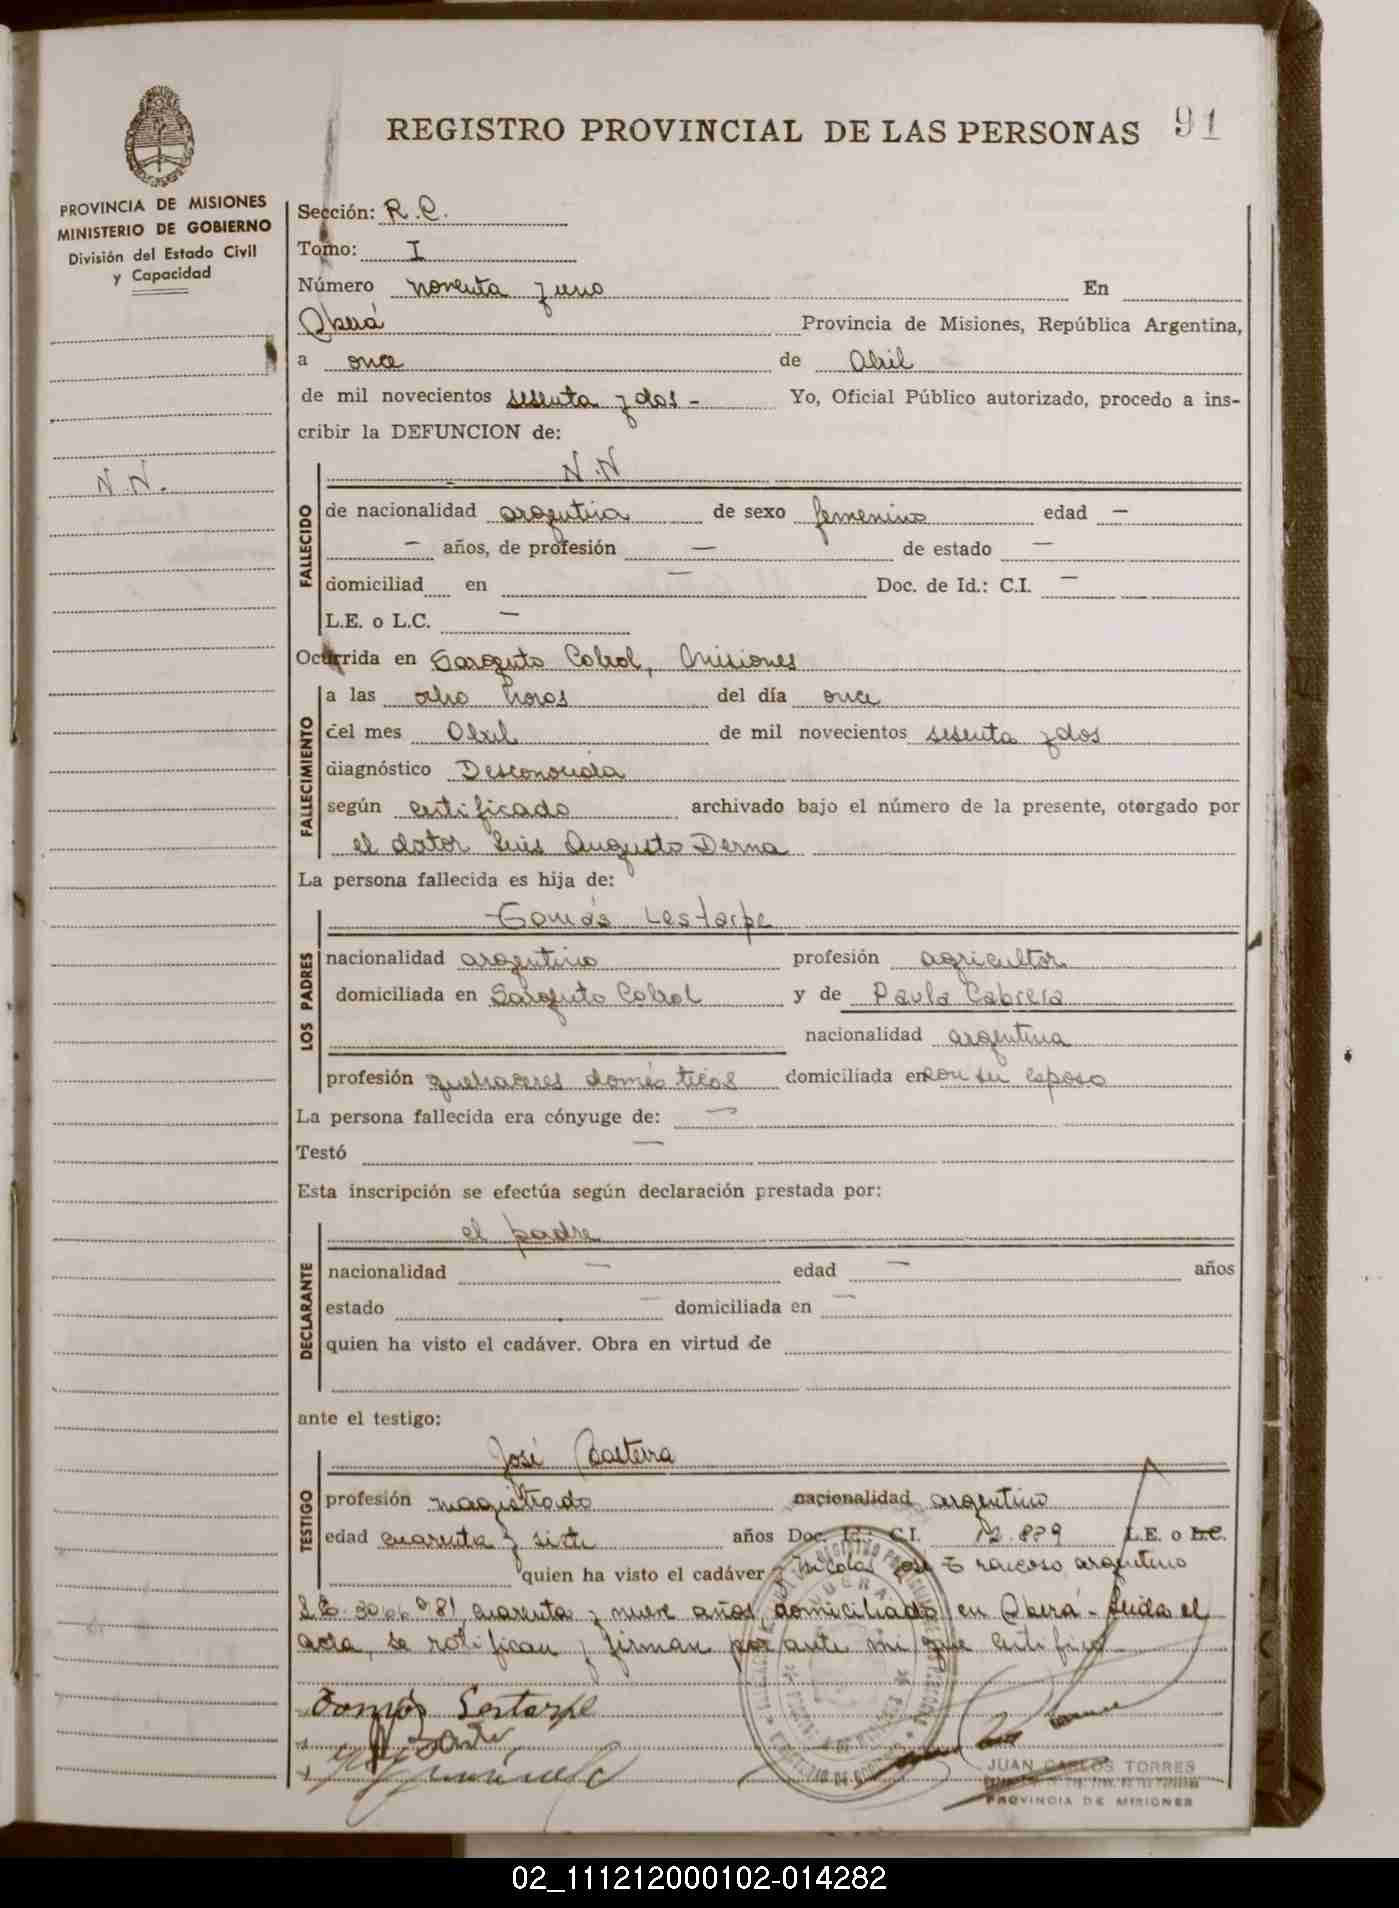 REGISTRO PROVINCIAL DE LAS PERSONAS 91
PROVINCIA DE MISIONES
MINISTERIO DE GOBIERNO
División del Estado Civil
y Capacidad
N.N.
Sección: R.C.
Tomo: I
Número noventa y uno En
Oberá Provincia de Misiones, República Argentina,
a once de Abril
de mil novecientos sesenta y dos - Yo, Oficial Público autorizado, procedo a ins-
cribir la DEFUNCION de:
N.N
FALLECIDO
de nacionalidad argentina de sexo femenino edad —
— años, de profesión — de estado —
domiciliad en — Doc. de Id.: C.I. —
L.E. o L.C. —
Ocurrida en Sargento Cabral, Misiones
FALLECIMIENTO
a las ocho horas del día once
del mes Abril de mil novecientos sesenta y dos
diagnóstico Desconocida
según certificado archivado bajo el número de la presente, otorgado por
el doctor Luis Augusto Derna
La persona fallecida es hija de:
LOS PADRES
Tomás Lestarpe
nacionalidad argentino profesión agricultor
domiciliada en Sargento Cabral y de Paula Cabrera
nacionalidad argentina
profesión quehaceres domésticos domiciliada en con su esposo
La persona fallecida era cónyuge de: —
Testó —
Esta inscripción se efectúa según declaración prestada por:
DECLARANTE
el padre
nacionalidad — edad — años
estado — domiciliada en —
quien ha visto el cadáver. Obra en virtud de
ante el testigo:
TESTIGO
José
profesión magistrado nacionalidad argentino
edad cuarenta y siete años Doc. Id.: C.I. 12.839 L.E. o L.C.
quien ha visto el cadáver y Nicolás José argentino
cuarenta y nueve años, domiciliado en Oberá - Leída el
acta, se ratifican y firman por ante mi que certifico
Tomás Lestarpe
JUAN CARLOS TORRES
PROVINCIA DE MISIONES
02_111212000102-014282